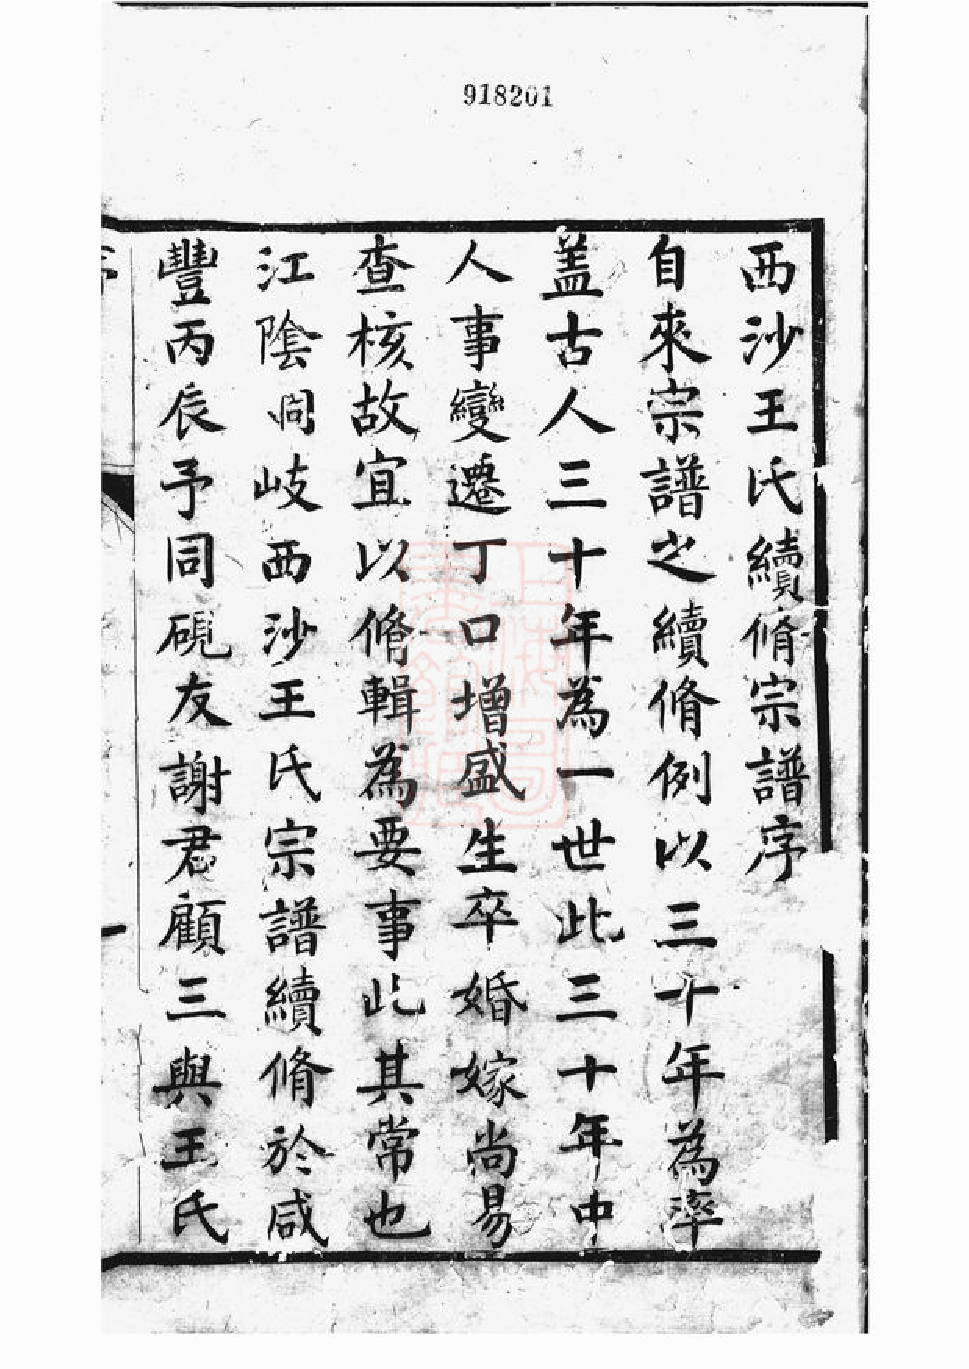 918201
西沙王氏續脩宗譜序
自來宗譜之續脩例以三十年為率
盖古人三十年為一世此三十年中
人事變遷丁口增盛生卒婚嫁尚易
查核故宜以脩輯為要事此其常也
江陰周岐西沙王氏宗譜續脩於咸
豐丙辰予同硯友謝君顧三與王氏